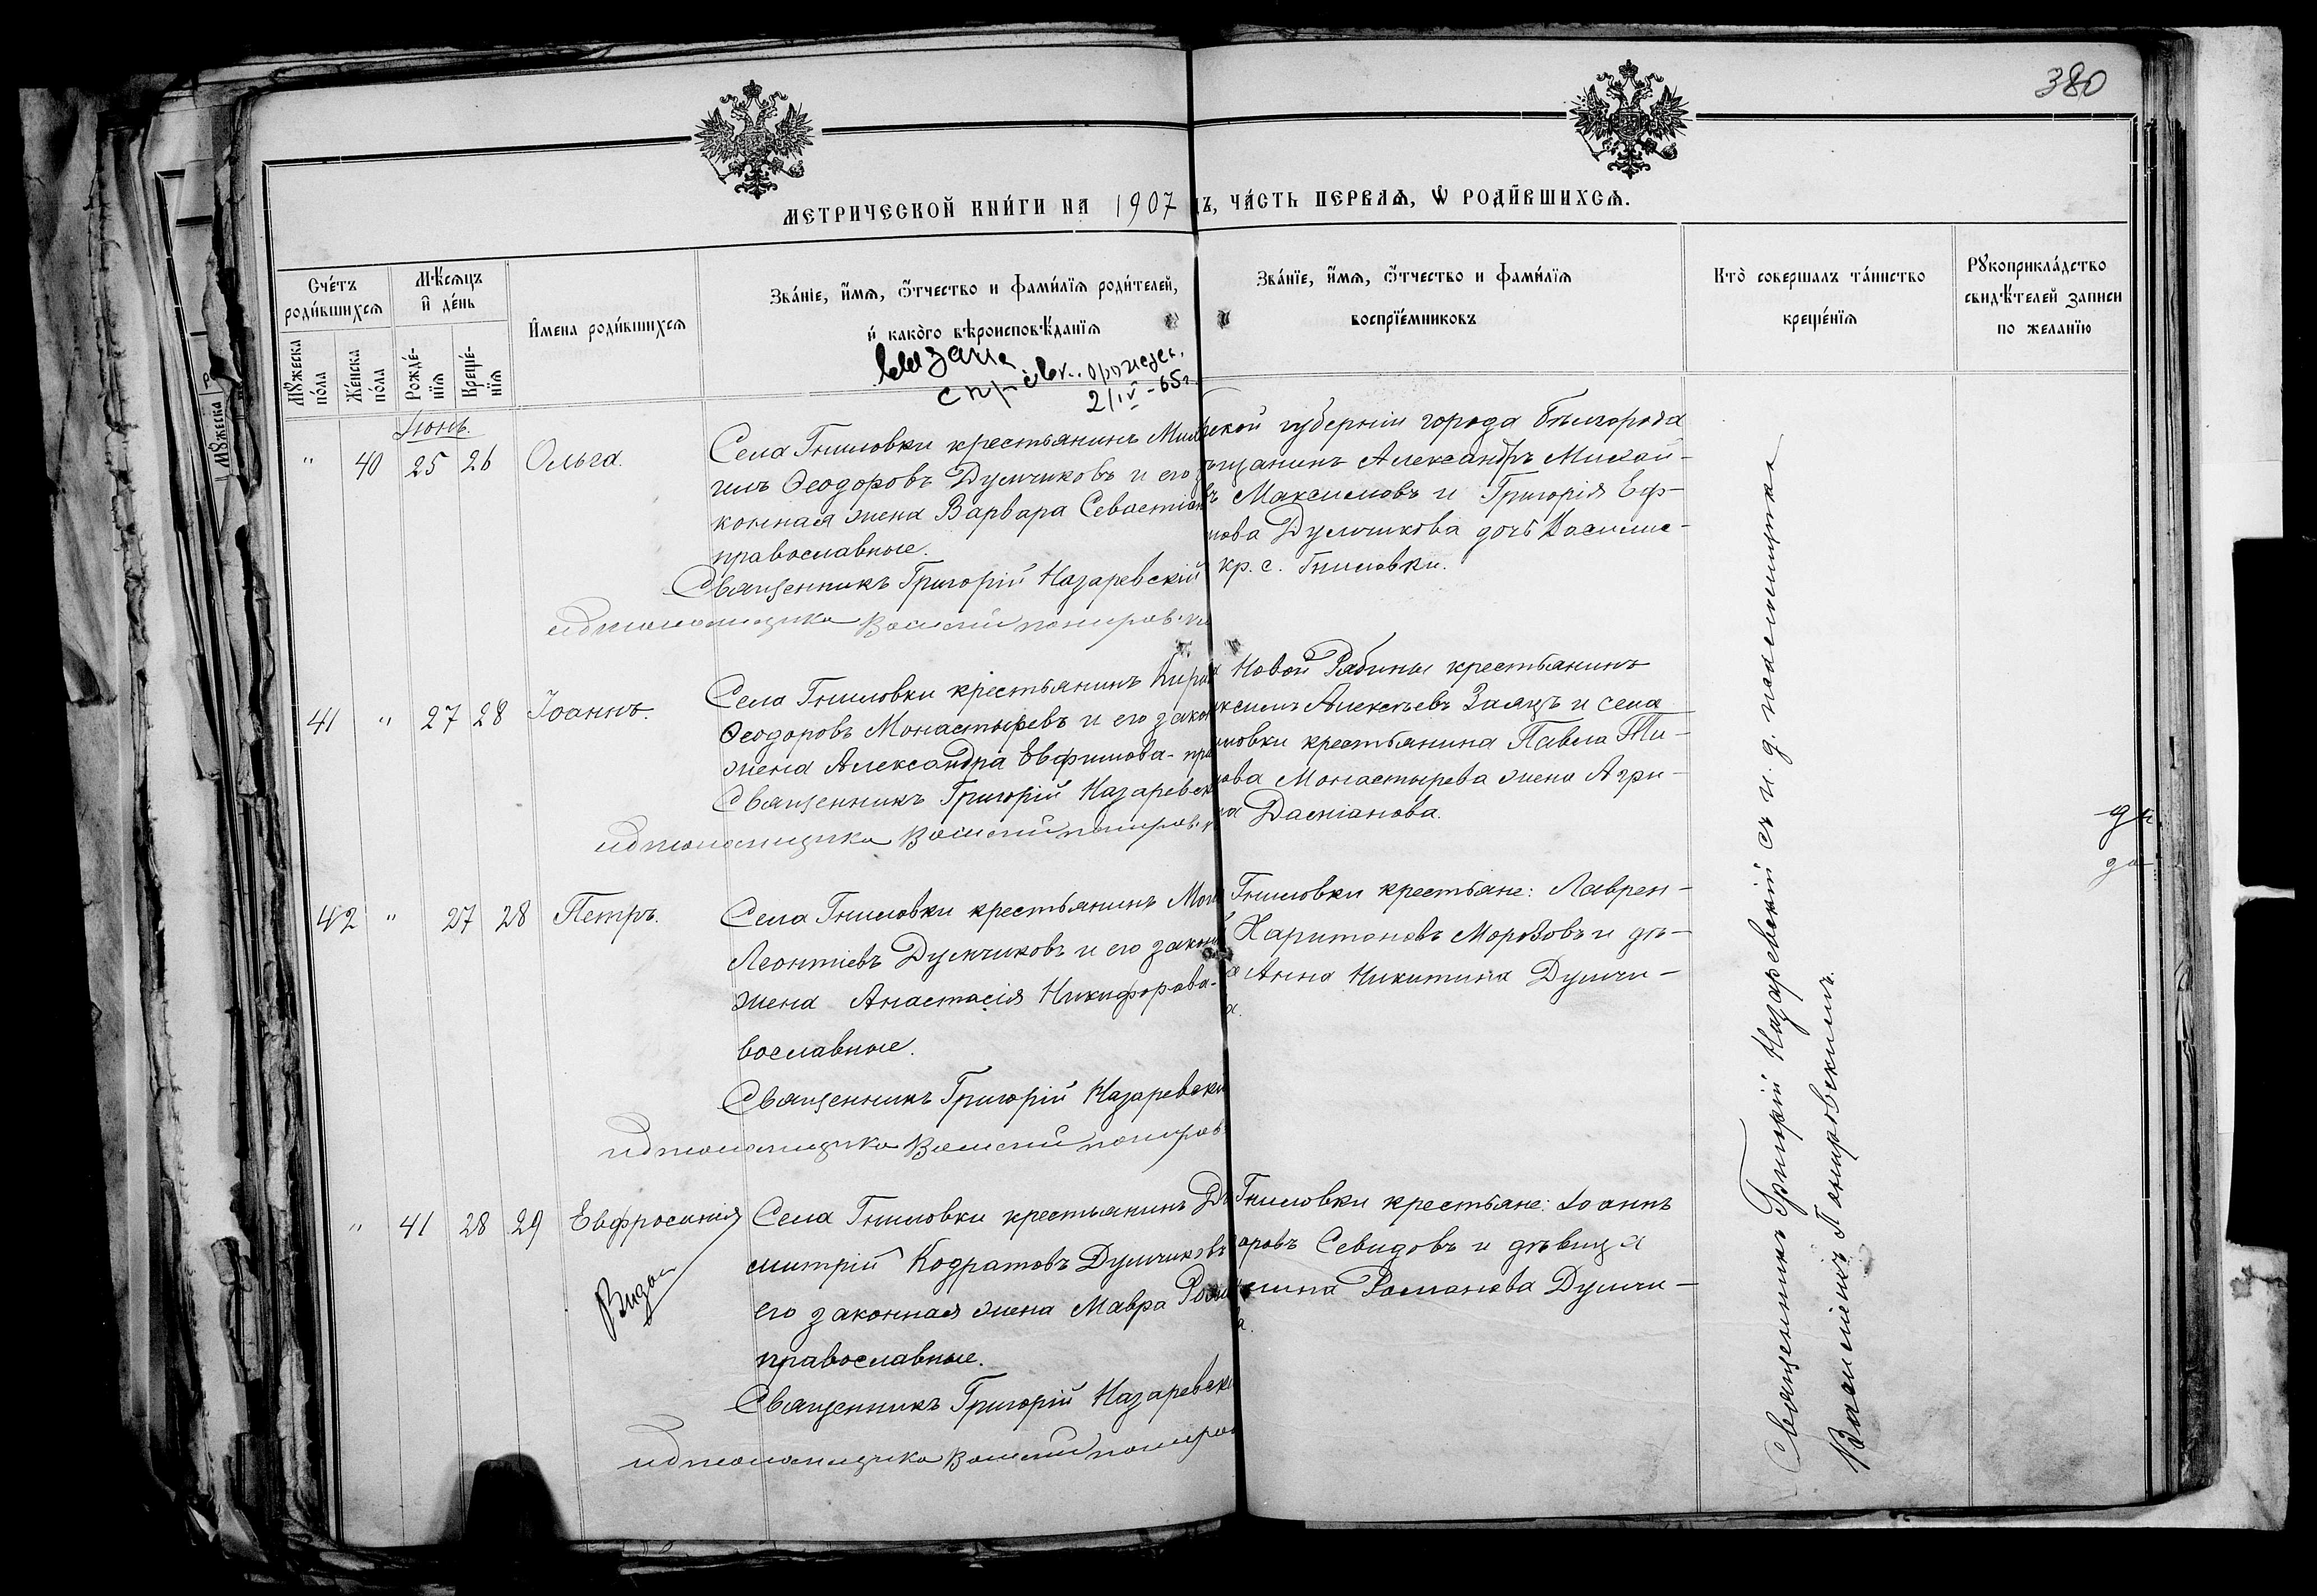 380
МЕТРИЧЕСКОЙ КНИ́ГИ НА 1907
Ъ, ЧА́СТЬ ПЕРВАЯ, Ѡ РОДИ́ВШИХСЯ.
Сче́тъ родИ́вшихся
Мꙋ́жеска по́ла
Же́нска по́ла
Мѣ́сяцъ и де́нь
Рожде́нїя
Креще́нїя
И́мена роди́вшихся
Зва́нїе, и́мя, ѻ́тчество и фами́лїя роди́телей,
и како́го вѣроисповѣ́данїя
Зва́нїе, и́мя, ѻ́тчество и фами́лїя
воспрїе́мниковъ
Кто̀ совершалъ та́инство
креще́нїя
Рꙋкоприкла́дство
свидѣ́телей записи
по жела́нїю
2/IV-65г.
Іюнь.
" 40 25 26 Ольга.
Села Гниловки крестьянинъ Миха
илъ Ѳеодоровъ Думчиковъ и его
конная жена Варвара Севастіан
православные.
Священникъ Григорій Назаревскій
ской губерніи города Бѣлгорода
щанинъ Александръ Михай-
въ Максимовъ и Григорія Еф-
мова Думчикова дочь Василис-
кр. с. Гниловки.
41 " 27 28 Іоаннъ.
Села Гниловки крестьянинъ Кири
Ѳеодоровъ Монастыревъ и его закон
жена Александра Евфимова - пра
Священникъ Григорій Назаревск
Новой Рябины крестьянинъ
ксимъ Алексѣевъ Заяцъ и села
ловки крестьянина Павла Ти-
ова Монастырева жена Агри-
на Даміанова.
42 " 27 28 Петръ.
Села Гниловки крестьянинъ
Леонтіевъ Думчиковъ и его закон
жена Анастасія Никифорова-
вославные.
Священникъ Григорій Назаревскі
Гниловки крестьяне: Лаврен-
Харитоновъ Морозовъ и дѣ-
а Анна Никитина Думчи-
а.
" 41 28 29 Евфросинія
Села Гниловки крестьянинъ Ди
митрій Кодратовъ Думчиковъ
его законная жена Мавра Рома
православные.
Священникъ Григорій Назаревскі
Гниловки крестьяне: Іоаннъ
оровъ Севидовъ и дѣвица
Романова Думчи-
а.
Священникъ Григорій Назаревскій съ и. д. псаломщика
Василіемъ Понировскимъ.